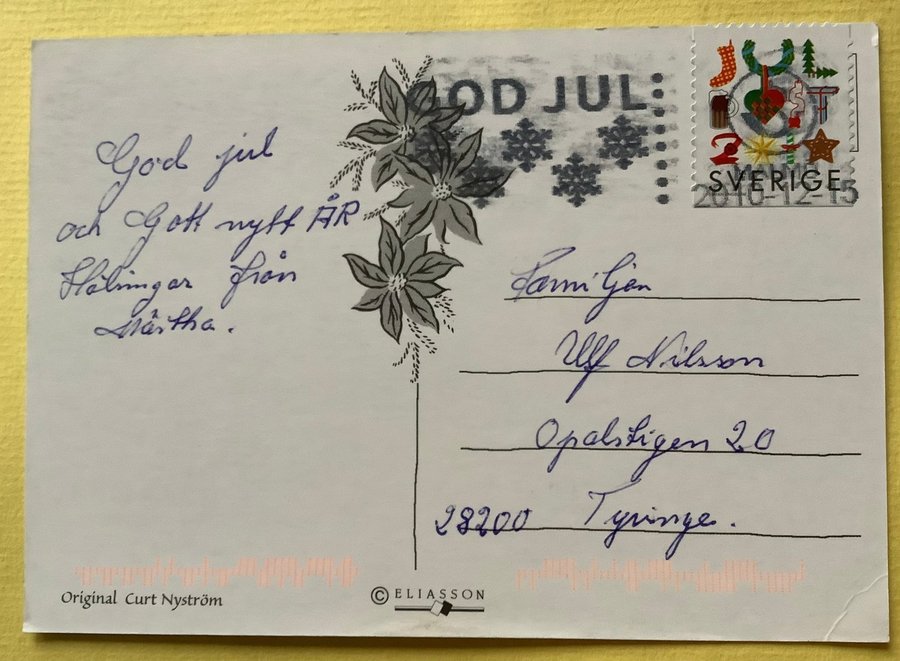 GOD JUL
JUL
POST
SVERIGE
2016-12-15
God jul
och Gott nytt ÅR
Hälsningar från
Märtha.
Familjen
Ulf Nilsson
Opalstigen 20
28200 Tyringe.
Original Curt Nyström
© ELIASSON